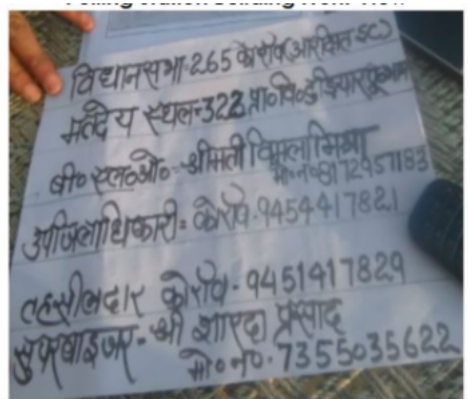 विधानसभा-265 कोराँव(आरक्षित SC)
मतदेय स्थल-322 प्रा०वि०
बी० एल०ओ०- श्रीमती विमला मिश्रा
मो०न०8172957183
उपजिलाधिकारी- कोराँव-9454417821
तहसीलदार कोराँव-9451417829
सुपरवाइजर- श्री शारदा प्रसाद
मो०न०-7355035622